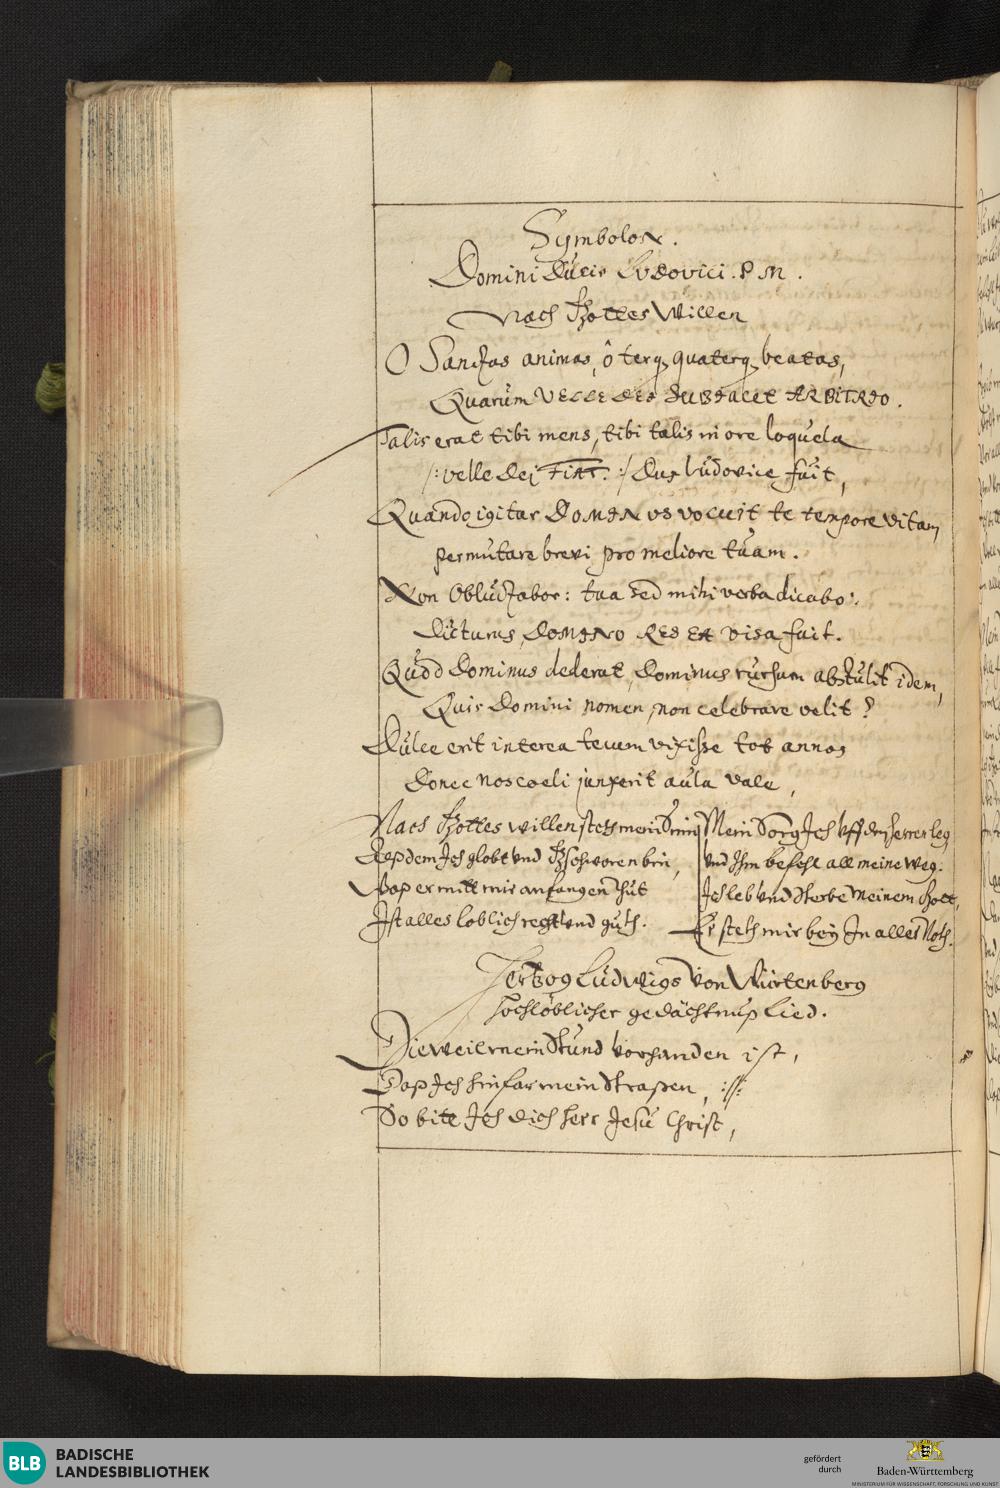 Symbolon.
Domini Ducis Ludovici. P M.
Nach Gottes Willen
O Sanctas animas, ô terq. quaterq. beatas,
Quarùm VELLE DEI SUBIACET ARBITRIO.
Talis erat tibi mens, tibi talis in ore loquela
/: velle Dei FIAT. :/ Dux Lùdovice fùit,
Quando igitur DOMINUS vocuit te tempore vitam
permùtare brevi pro meliore tùam.
Non Oblùctabor: tua sed mihi verba dicabo:
Dicturus, DOMINO RES EA visa fuit.
Qùod Dominus dederat, Dominus rursum abstùlit idem,
Quis Domini nomen, non celebrare velit?
Dùlce erit interea tecum vixisse tot annos
Donec nos coeli junxerit aùla vale,
Nach Gottes willen stets mein Sinn
Deß dem Ich globt und Gschworen bin,
Waß er mitt mir anfangen thùt
Ist alles loblich recht und gùth.
Mein Sorg Ich uff den herren leg
und Ihm befehl all meine weg.
Ich leb und Sterbe meinem Gott,
Er steth mir bey In aller Noth.
Hertzog Lùdwigs von Wirtenberg
hochlöblicher gedächtnuß Lied.
Dieweil mein Stùnd vorhanden ist,
Daß Ich hinfar mein Straßen, ://:
So bitt Ich dich herr Jesù Christ,
BLB
BADISCHE
LANDESBIBLIOTHEK
gefördert
durch
Baden-Württemberg
MINISTERIUM FÜR WISSENSCHAFT, FORSCHUNG UND KUNST